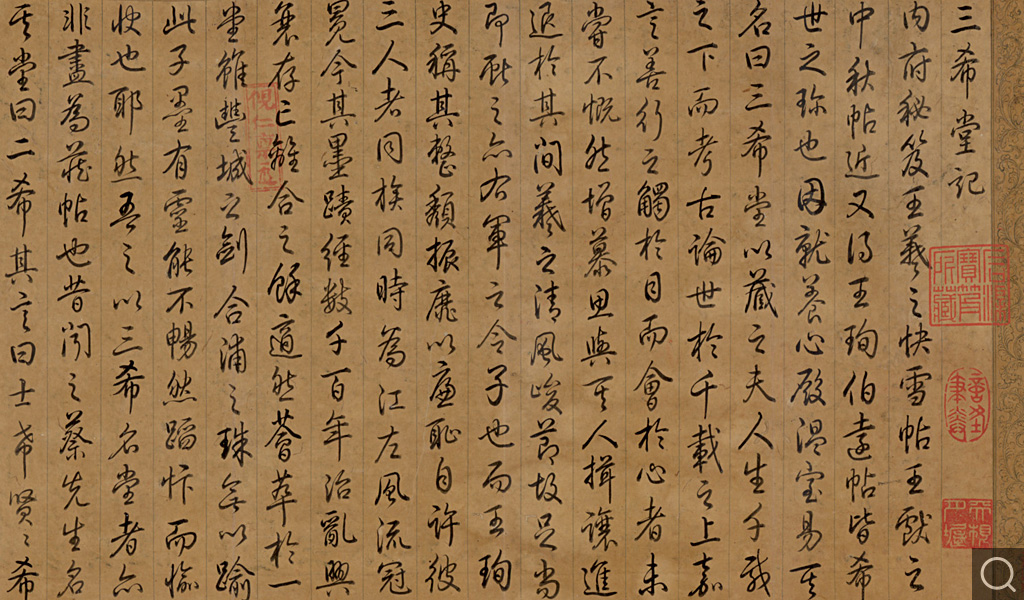 三希堂記
內府秘笈王羲之快雪帖王獻之
中秋帖近又得王珣伯遠帖皆希
世之珍也因就養心殿溫室易其
名曰三希堂以藏之夫人生千載
之下而考古論世於千載之上嘉
言善行之觸於目而會於心者未
嘗不慨然增慕思與其人揖讓進
退於其間羲之清風峻節固足尚
即獻之亦右軍之令子也而王珣
史稱其整頹振靡以廉恥自許彼
三人者同族同時為江左風流冠
冕今其墨蹟經數千百年治亂興
衰存亡離合之餘適然薈萃於一
堂雖豐城之劍合浦之珠無以踰
此子墨有靈能不暢然蹈忭而愉
快也耶然吾之以三希名堂者亦
非盡為藏帖也昔聞之蔡先生名
其堂曰二希其言曰士希賢賢希